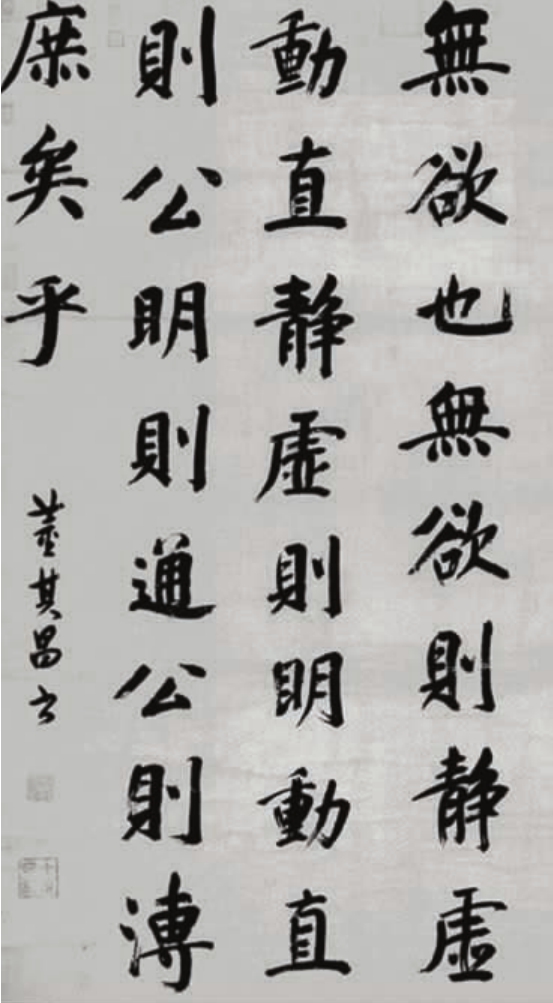 無欲也無欲則静虛
動直静虛則明動直
則公明則通公則溥
庶矣乎
董其昌書